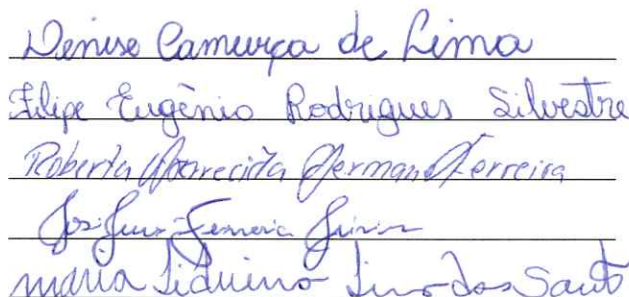 Denise Camurça de Lima
Filipe Eugênio Rodrigues Silvestre
Roberta Aparecida Germano Ferreira
Ferreira Júnior
maria Liduino Lino dos Santos